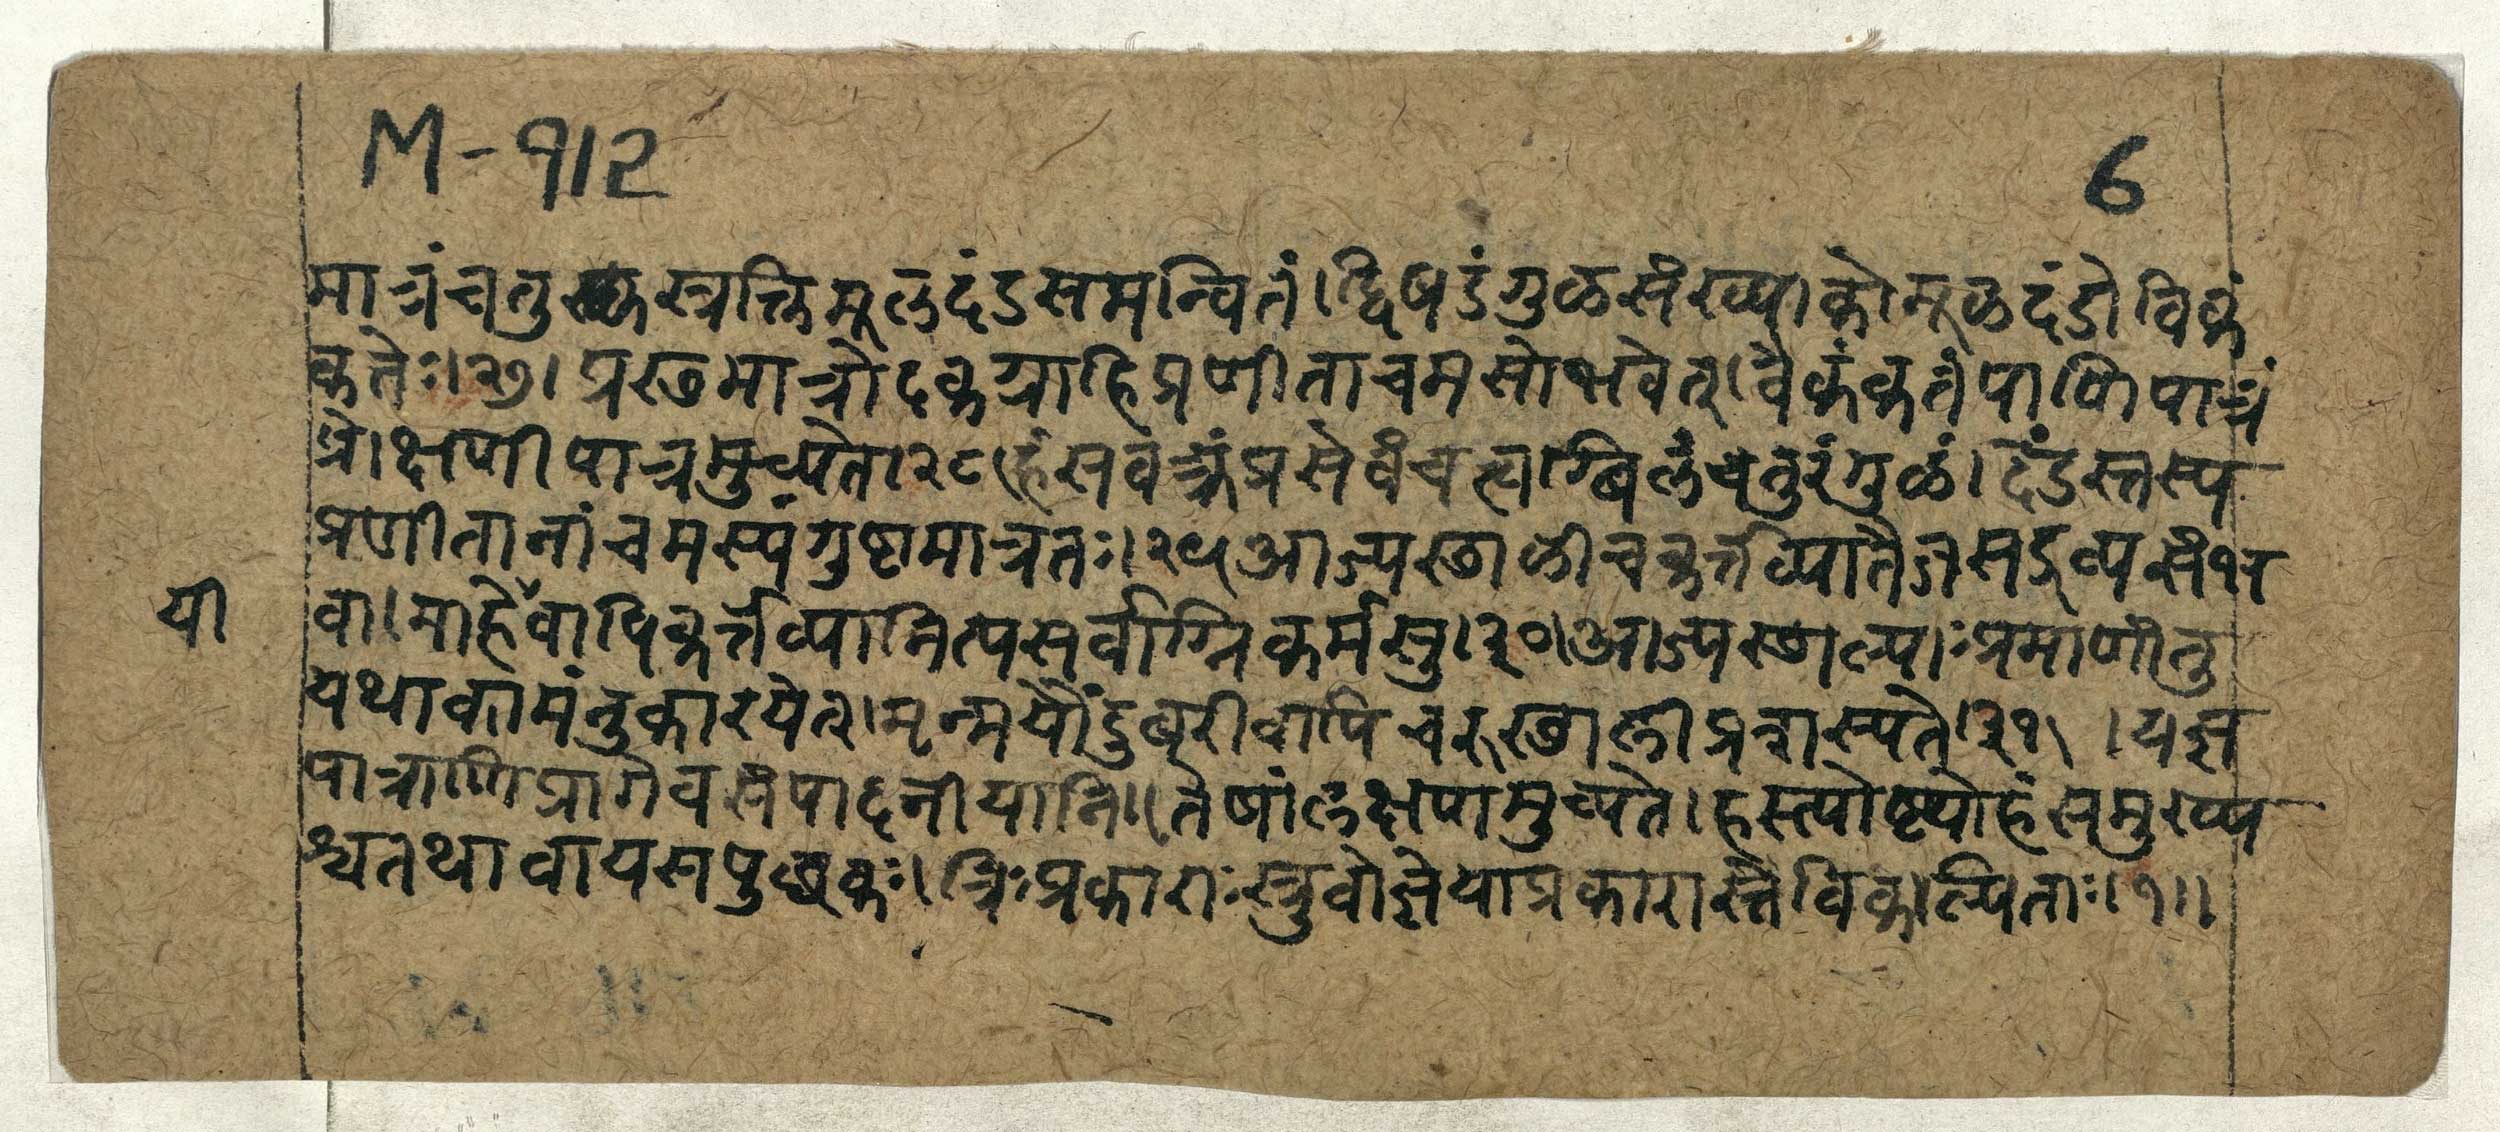 M-912
6
मात्रंचतुरस्रक्तिमूलदंडसमन्वितं।द्विषडंगुळसंख्याकोमूळदंडोविकं
कतेः।२७। प्रस्थमात्रोदकग्राहिप्रणीताचमसोभवेत्।वैकंकतंपाणिपात्रं
प्रोक्षणीपात्रमुच्यते।२८।हंसवक्त्रंप्रसेवंचत्वाग्बिलंचतुरंगुळं।दंडस्तस्य
प्रणीतानांचमस्यंगुष्टमात्रतः।२९आज्यस्थाळीचकर्त्तव्यातैजसद्रव्यसंभ
यी
वा।माहेवापिकर्त्तव्यानित्यसर्वाग्निकर्मसु।३०।आज्यस्थाल्याःप्रमाणंतु
यथाकामंतुकारयेत्।मृन्मयौंदुबरीवापिचरुस्थालीप्रशस्यते।३१। ।यज्ञ
पात्राणिप्रागेवसंपादनीयानि।।तेषांलक्षणमुच्यते।हस्त्योष्ट्योहंसमुख्य
श्चतथावायसपुछकः।त्रिःप्रकाराःस्त्रुवोज्ञेयाप्रकारास्तैविकाल्पिताः।१।।